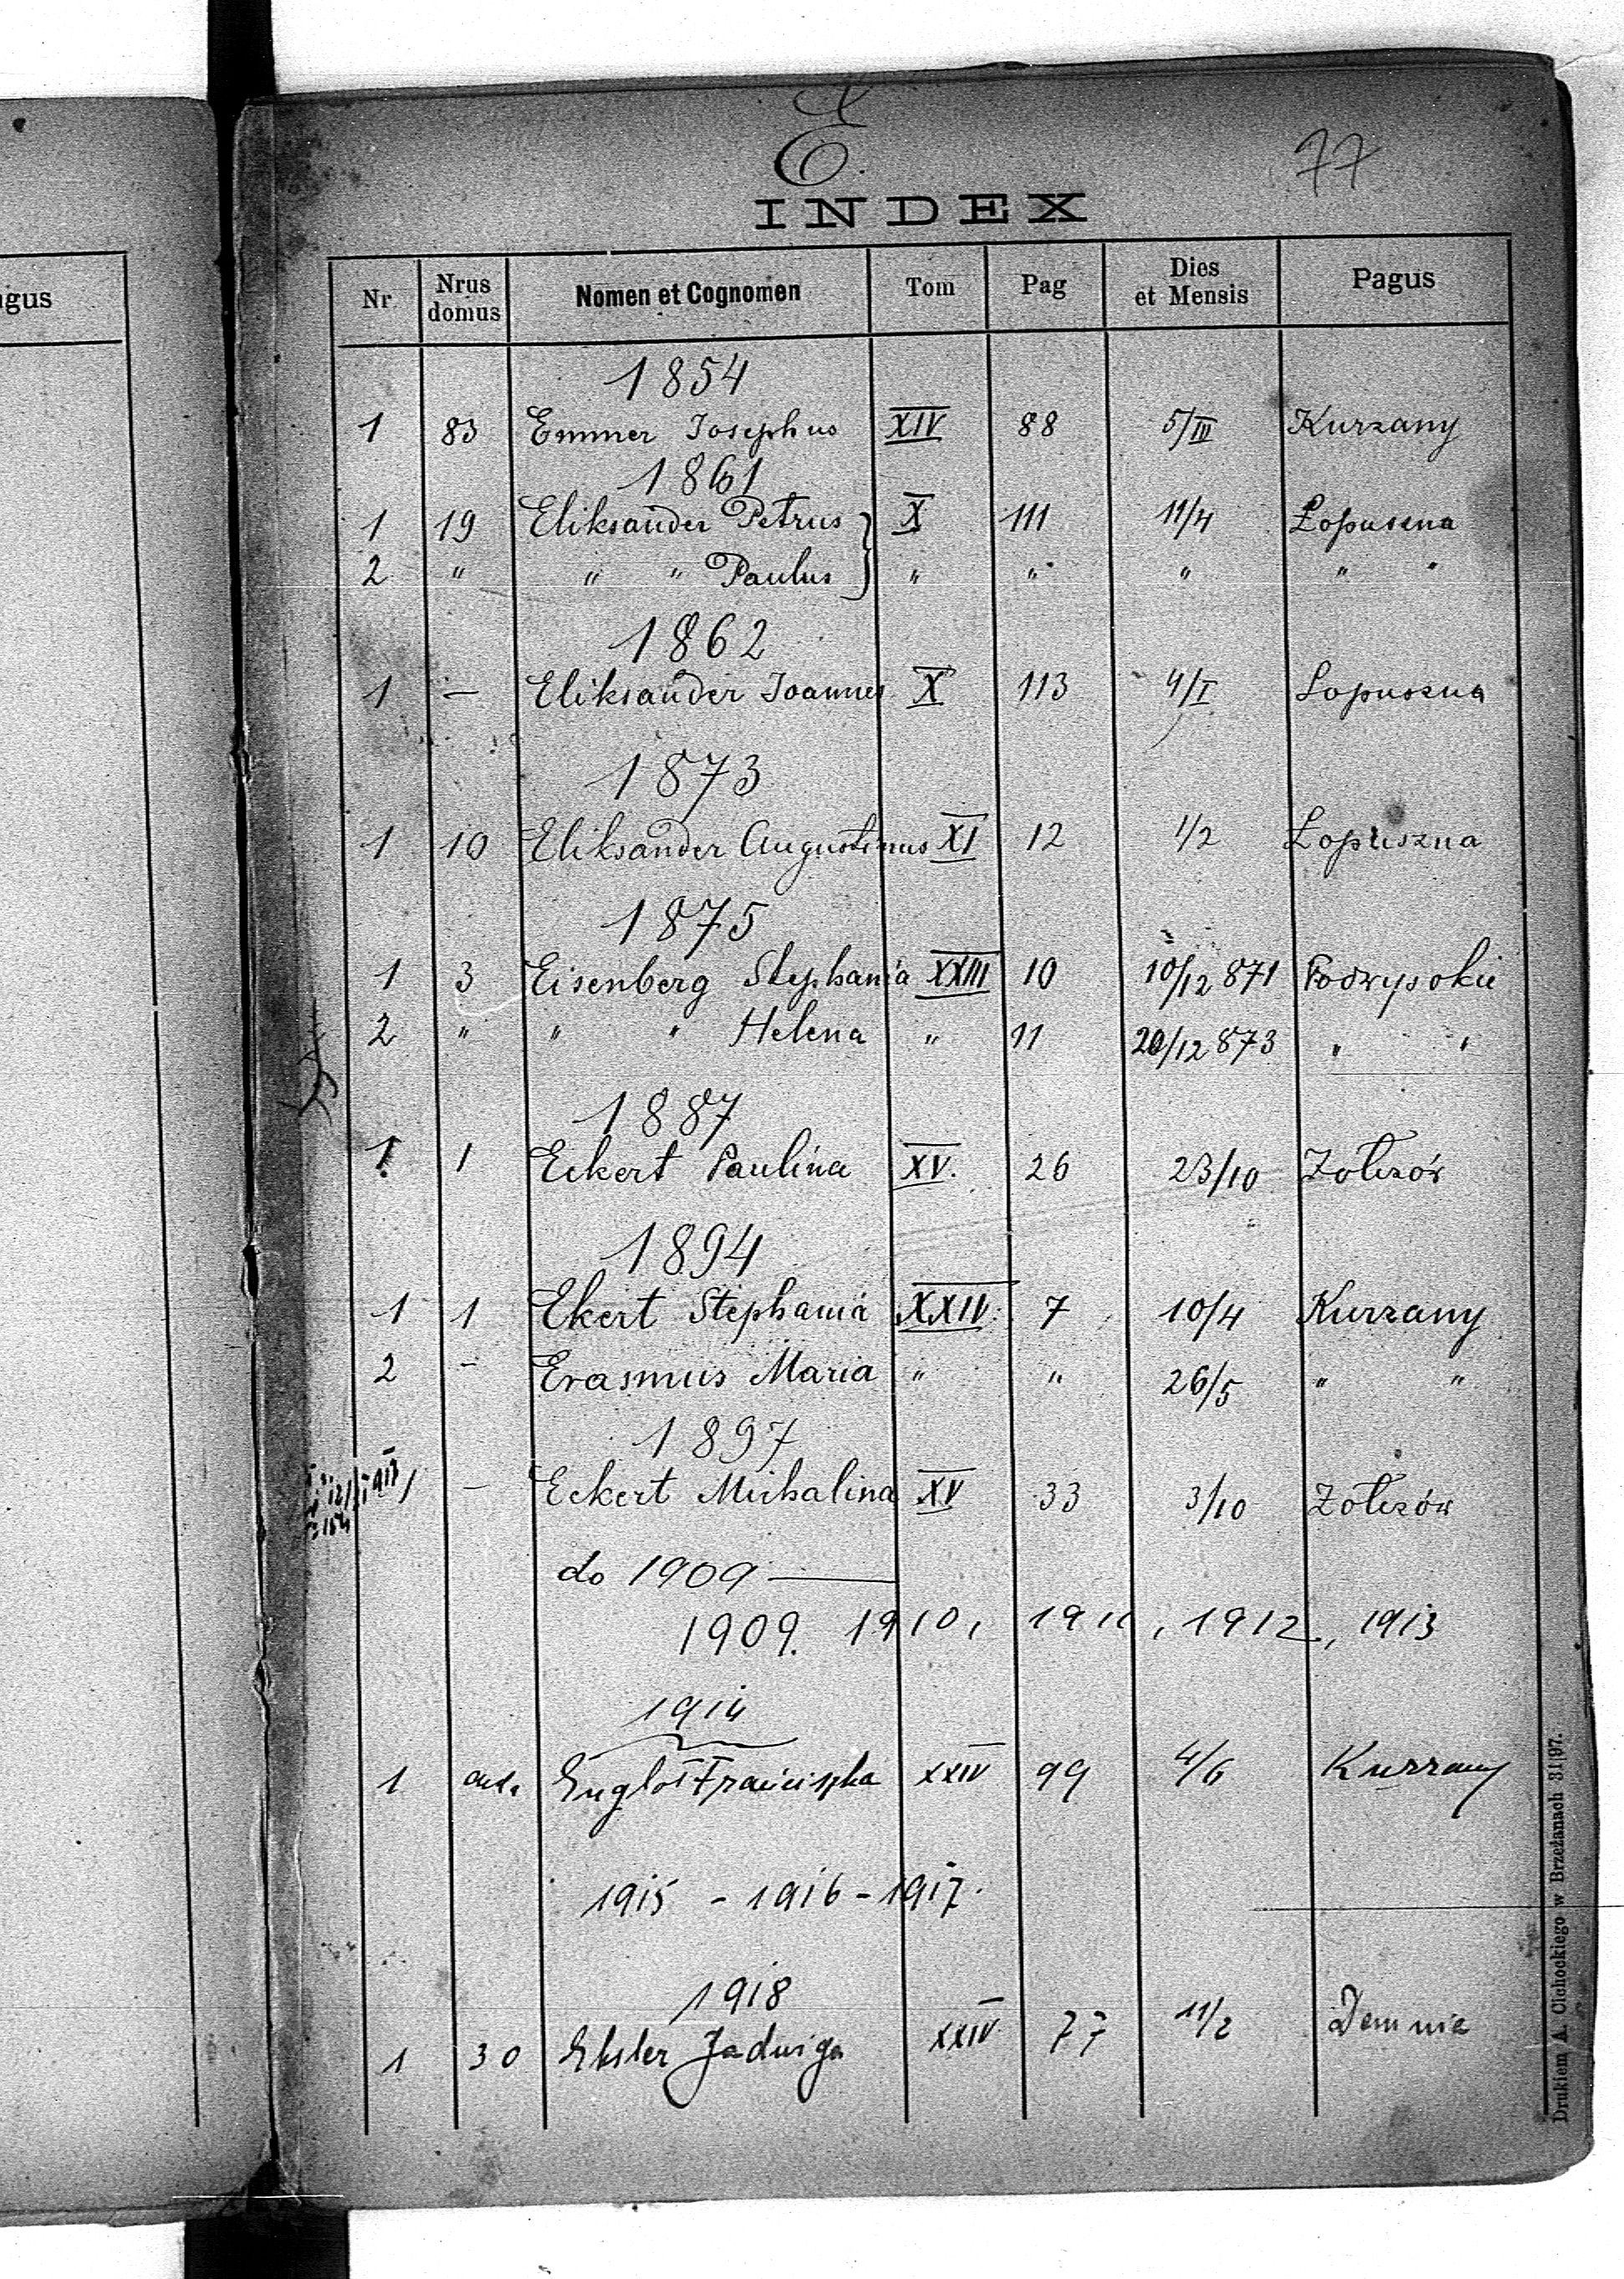 agus
E.
77
INDEX
Nr Nrus domus Nomen et Cognomen Tom Pag Dies et Mensis Pagus
1854
1 83 Emmer Josephus XIV 88 5/III Kurzany
1861
1 19 Eliksander Petrus } X 111 11/4 Łopuszna
2 " " " Paulus } " " " " "
1862
1 — Eliksander Joannes X 113 4/I Lopuszna
1873
1 10 Eliksander Augustinus XI 12 1/2 Lopuszna
1875
1 3 Eisenberg Stephania XXIII 10 10/12 871 Podwysokie
2 " " " Helena " 11 20/12 873 " "
1887
1. 1 Eckert Paulina XV. 26 23/10 Żołczów
1894
1 1 Ekert Stephania XXIV. 7 10/4 Kurzany
2 - Erasmus Maria " " 26/5 " "
1897
1 - Eckert Michalina XV 33 3/10 Żołczów
do 1909 —
1909. 1910, 1911, 1912, 1913
1914
1 Englot Franciszka XXIV 99 4/6 Kurzany
1915 - 1916 - 1917.
1918
1 30 Jadwiga XXIV. 77 11/2 Demnia
Drukiem A. Cichockiego w Brzeżanach 31|97.